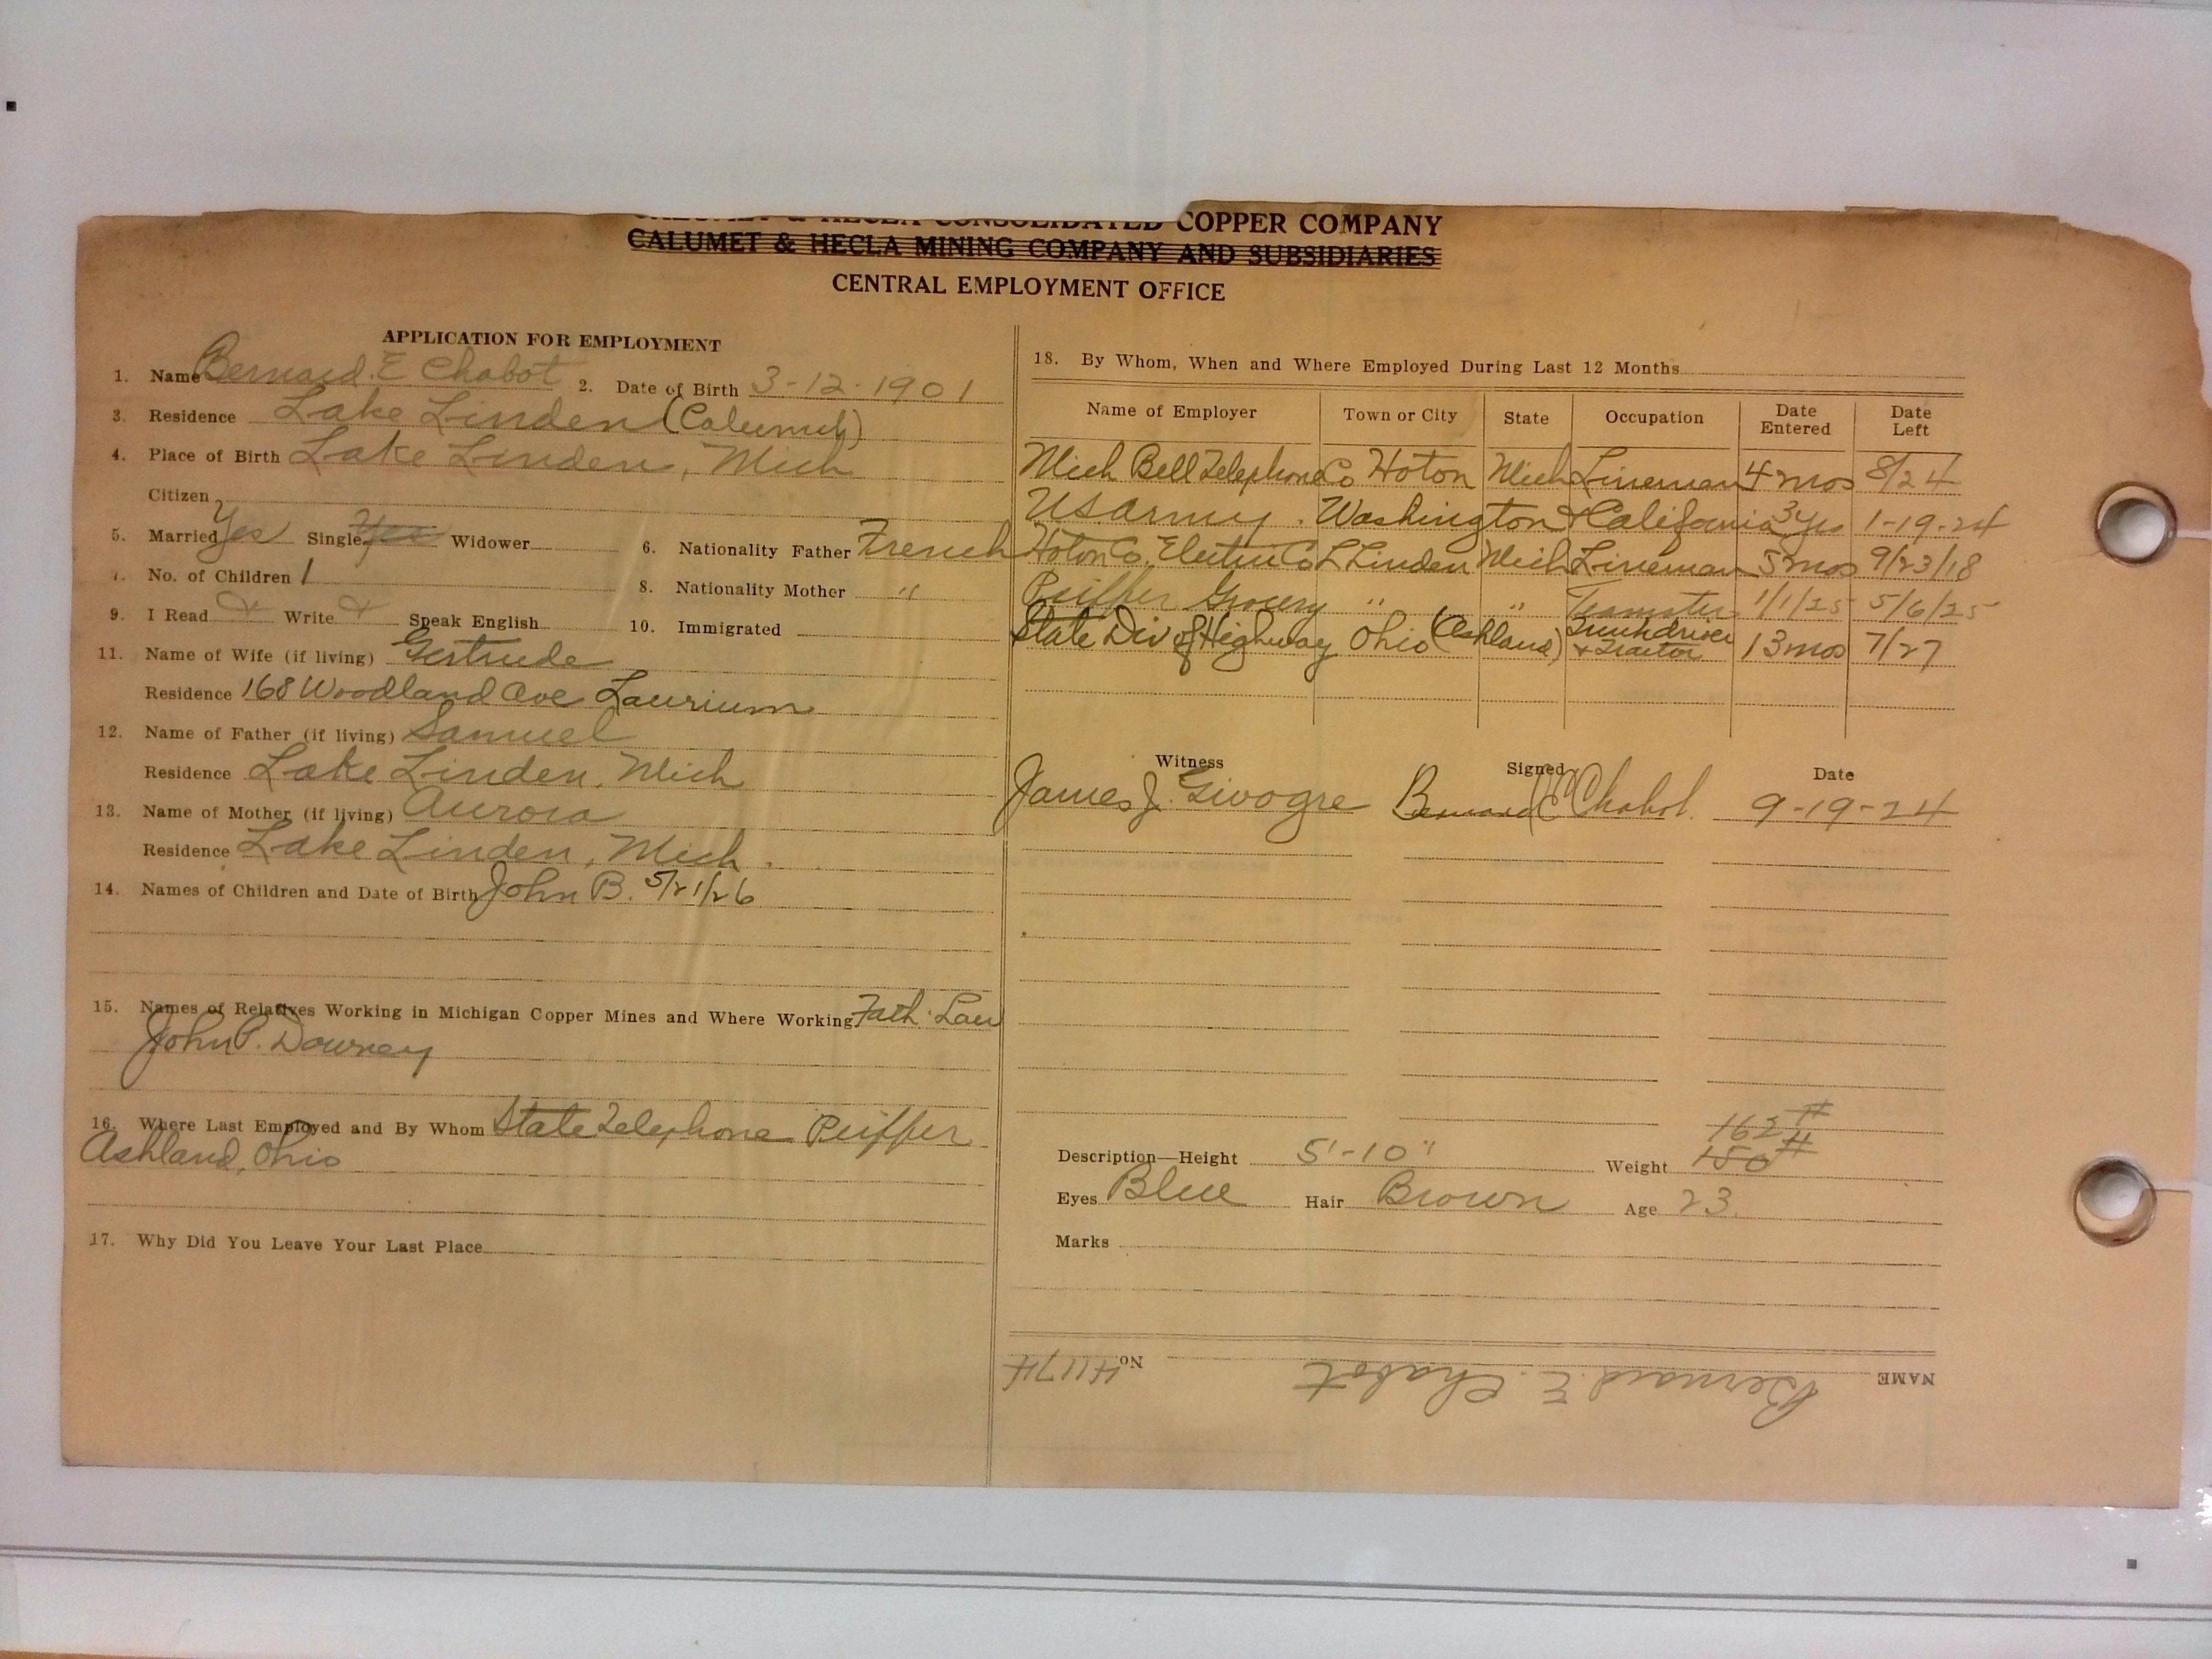 CALUMET & HECLA CONSOLIDATED COPPER COMPANY
CALUMET & HECLA MINING COMPANY AND SUBSIDIARIES
CENTRAL EMPLOYMENT OFFICE
APPLICATION FOR EMPLOYMENT
1. Name Bernard. E Chabot 2. Date of Birth 3-12-1901
3. Residence Lake Linden (Calumet)
4. Place of Birth Lake Linden, Mich
Citizen
5. Married Yes Single Yes Widower 6. Nationality Father French
7. No. of Children 1 8. Nationality Mother "
9. I Read X Write X Speak English 10. Immigrated
11. Name of Wife (if living) Gertrude
Residence 168 Woodland Ave Laurium
12. Name of Father (if living) Samuel
Residence Lake Linden, Mich
13. Name of Mother (if living) Aurora
Residence Lake Linden, Mich.
14. Names of Children and Date of Birth John B. 5/21/26
15. Names of Relatives Working in Michigan Copper Mines and Where Working Fath. Law
John P. Downey
16. Where Last Employed and By Whom State Telephone Peiffer
Ashland, Ohio
17. Why Did You Leave Your Last Place
18. By Whom, When and Where Employed During Last 12 Months
Name of Employer Town or City State Occupation Date Entered Date Left
Mich Bell Telephone Co Hoton Mich Lineman 4 mos 8/24
U.S. Army. Washington & California 3 yrs 1-19-24
Hoton Co. Electric Co L Linden Mich Lineman 5 mos 9/23/18
Peiffer Grocery " " Teamster 1/1/25 5/6/25
State Div of Highway Ohio (Ashland) Truckdriver & Tractor 13 mos 7/27
Witness Signed Date
James J. Bernard E Chabot. 9-19-24
162 #
Description—Height 5'-10" Weight 150 #
Eyes Blue Hair Brown Age 23.
Marks
NAME Bernard. E. Chabot No. 41174